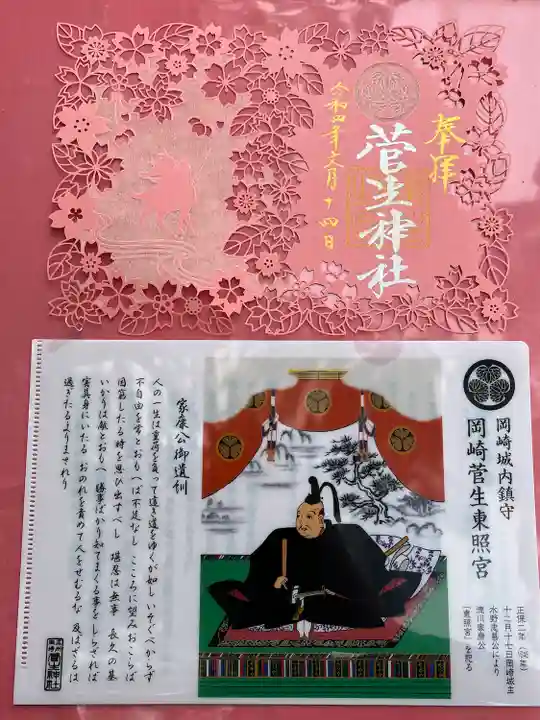 奉拝
菅生神社
令和四年六月十四日
岡崎城内鎮守
岡崎菅生東照宮
正保二年
十二月十七日岡崎城主
水野忠善公により
徳川家康公
「東照宮」を祀る
家康公御遺訓
人の一生は重荷を負って遠き道をゆくが如し いそぐべからず
不自由を常とおもへば不足なし こころに望みおこらば
困窮したる時を思ひ出すべし 堪忍は無事 長久の基
いかりは敵とおもへ 勝事ばかり知てまくる事をしらざれば
害其身にいたる おのれを責めて人をせむるな 及ばざるは
過ぎたるよりまされり
菅生神社